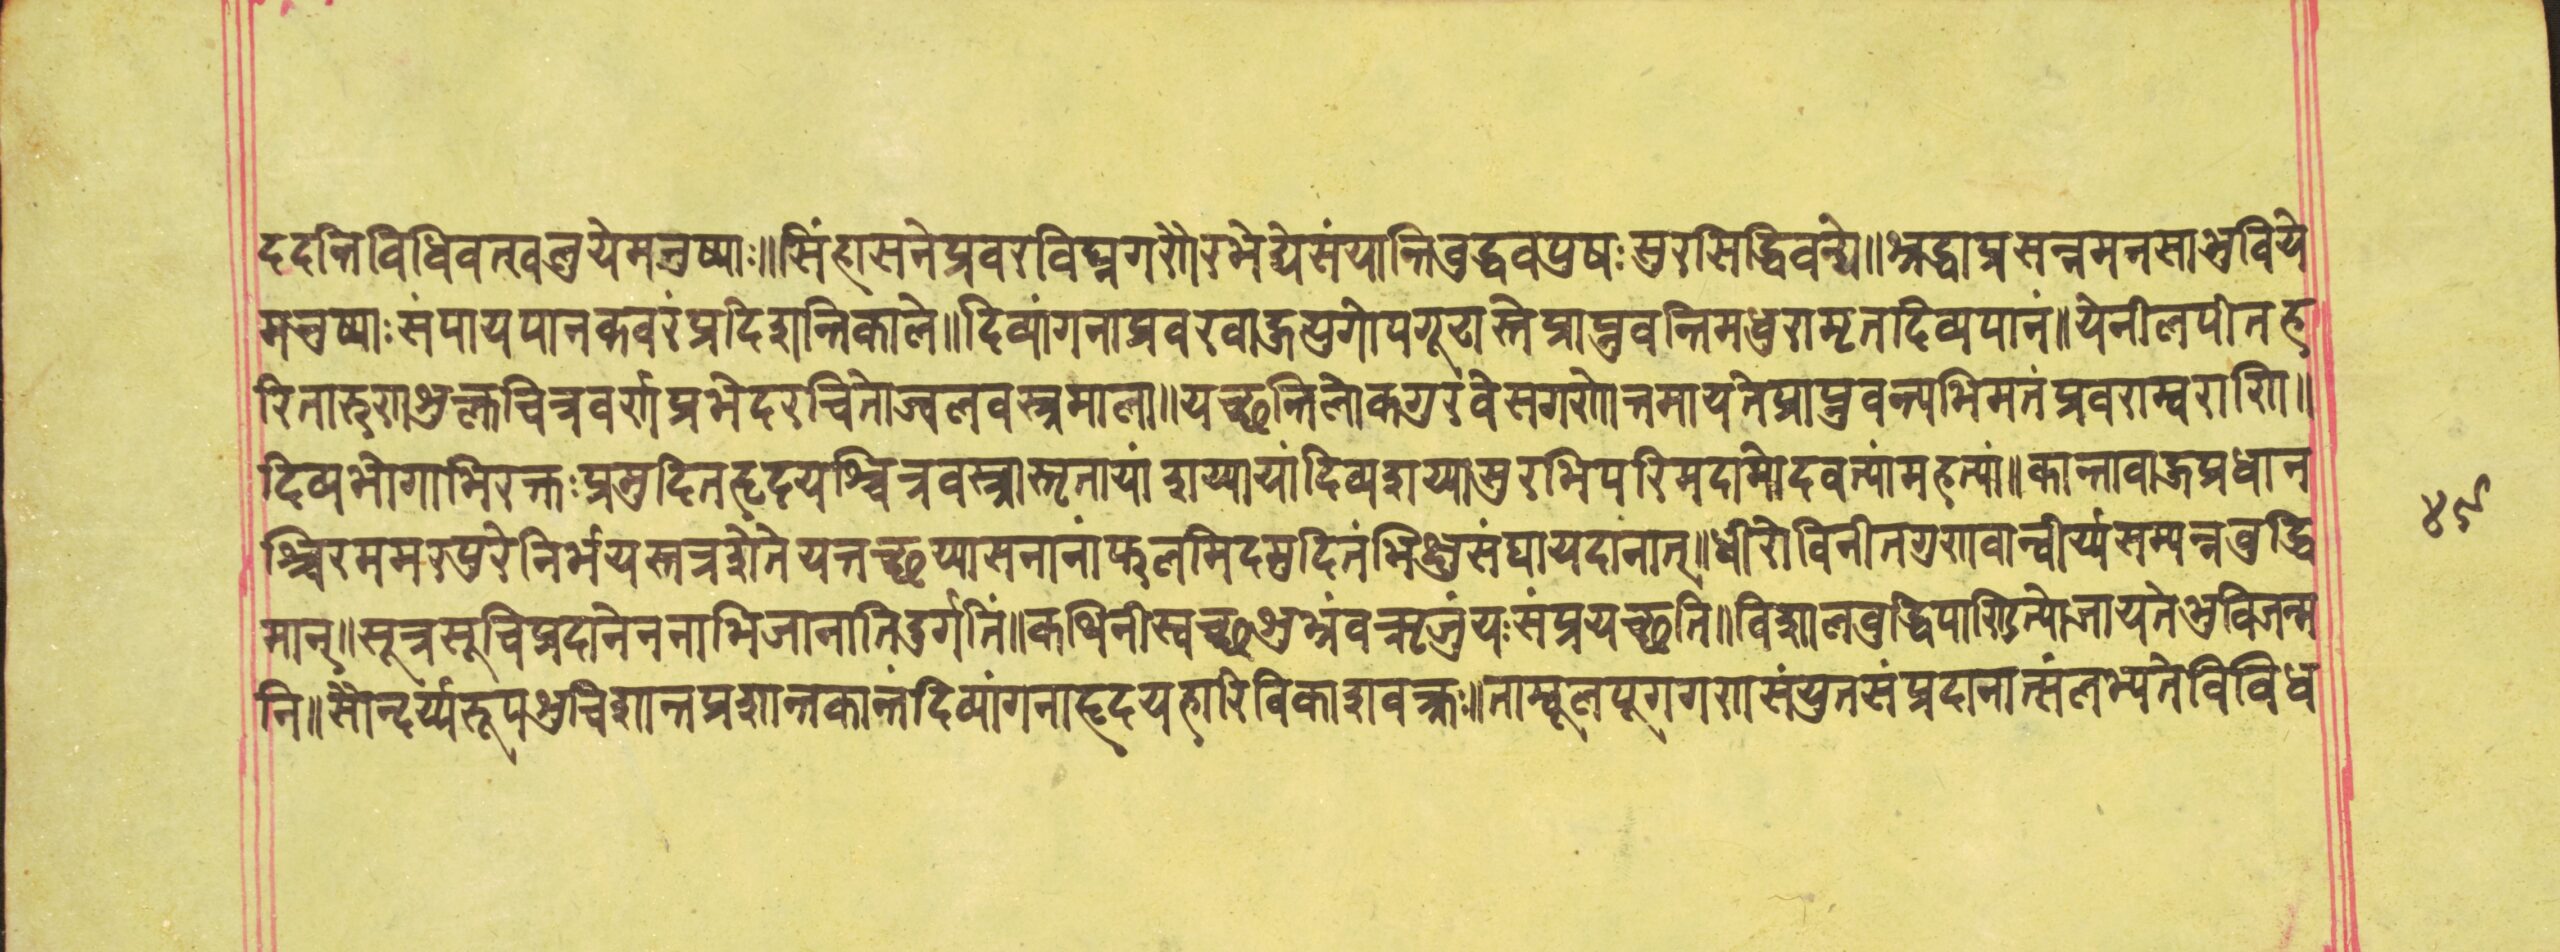 ददन्ति विधिवत्खलु ये मनुष्याः॥ सिंहासने प्रवरविघ्नगणैरभेद्ये संयान्ति बुद्धवपुषः सुरसिद्धिवन्द्ये॥ श्रद्धाप्रसन्नमनसा भुवि ये
मनुष्याः संघाय पानकवरं प्रदिशन्ति काले॥ दिव्यांगनाप्रवरबाहुयुगोपगूढास्ते प्राप्नुवन्ति मधुरामृतदिव्यपानं॥ ये नीलपीतह
रितारुणशुक्लचित्रवर्णप्रभेदरचितोज्वलवस्त्रमाला॥ यच्छन्ति लोकगुरवे सगणोत्तमाय ते प्राप्नुवन्त्यभिमतं प्रवराम्बराणि॥
दिव्यभोगाभिरक्तः प्रमुदितहृदयश्चित्रवस्त्रास्तृतायां शय्यायां दिव्यशय्यासुरभिपरिमदामोदवत्यां महत्यां॥ कान्ताबाहुप्रधान
श्चिरममरपुरे निर्भयस्तत्र शेते यत्तच्छय्यासनानां फलमिदमुदितं भिक्षुसंघाय दानात्॥ धीरो विनीतगुणवान्वीर्य्यसम्पन्नबुद्धि
मान्॥ सूत्रसूचिप्रदानेन नाभिजानाति दुर्गतिं॥ कथिनीस्वच्छशुभ्रंवऋजुं यः संप्रयच्छति॥ विशालबुद्धिपाण्डित्यो जायते भुवि जन्म
नि॥ सौन्दर्य्यरूपशुचिशान्तप्रशान्तकान्तं दिव्यांगनाहृदयहारिविकाशवक्त्रः॥ ताम्बूलपूगगणसंयुतसंप्रदानात्संलभ्यते विविध
४९